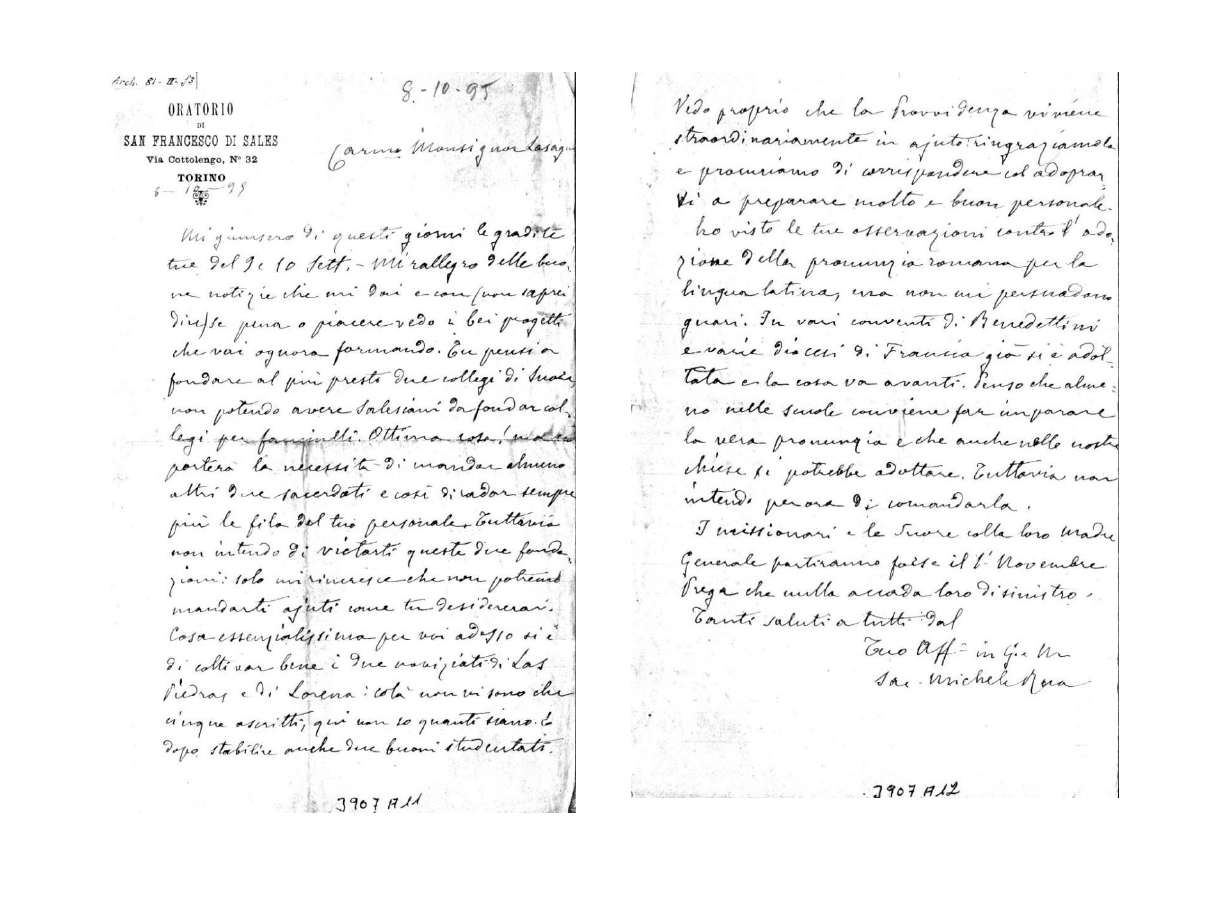 Arch. 81-II-53
8-10-95
ORATORIO
DI
SAN FRANCESCO DI SALES
Via Cottolengo, Nº 32
TORINO
Car.mo Monsignor Lasagna
Mi giunsero di questi giorni le gradite
tue del 9 e 10 Sett. - Mi rallegro delle buo-
ne notizie che mi dai e con (non saprei
dir) se pena o piacere vedo i bei progetti
che vai ognora formando. Tu pensi a
fondare al più presto due collegi di Suore,
non potendo avere Salesiani da fondar col-
legi per fanciulli. Ottima cosa! ma
porterà la necessità di mandar almeno
altri due sacerdoti e così diradar sempre
più le fila del tuo personale. Tuttavia
non intendo di vietarti queste due fonda-
zioni: solo mi rincresce che non potremo
mandarti ajuti come tu desidererai.
Cosa essenzialissima per voi adesso si è
di coltivar bene i due noviziati di Las
Piedras e di Lorena: colà non vi sono che
cinque ascritti, qui non so quanti siano. E
dopo stabilire anche due buoni studentati.
3907 A11
Vedo proprio che la Provvidenza vi viene
straordinariamente in ajuto: ringraziamola
e procuriamo di corrispondere col adoprar-
ti a preparare molto e buon personale.
ho visto le tue osservazioni contro l'ado-
zione della pronunzia romana per la
lingua latina, ma non mi persuadono
guari. In vari conventi di Benedettini
e varie diocesi di Francia già si è adot-
tata e la cosa va avanti. Penso che alme-
no nelle scuole conviene far imparare
la vera pronunzia e che anche nelle nostre
chiese si potrebbe adottare. Tuttavia non
intendo per ora di comandarla.
I missionari e le Suore colla loro Madre
Generale partiranno forse il 1º Novembre
Prega che nulla accada loro di sinistro.
Tanti saluti a tutti dal
Tuo Aff.º in G. e M.
Sac. Michele Rua
3907 A12